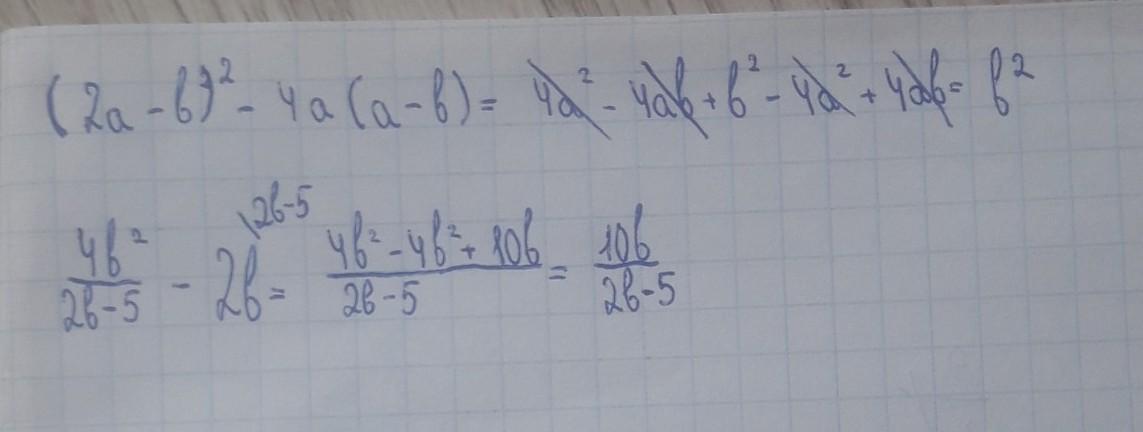 (2a - b)² - 4a(a - b) = 4a² - 4ab + b² - 4a² + 4ab = b²
4b²/(2b - 5) - 2b\2b-5 = (4b² - 4b² + 10b)/(2b - 5) = 10b/(2b - 5)